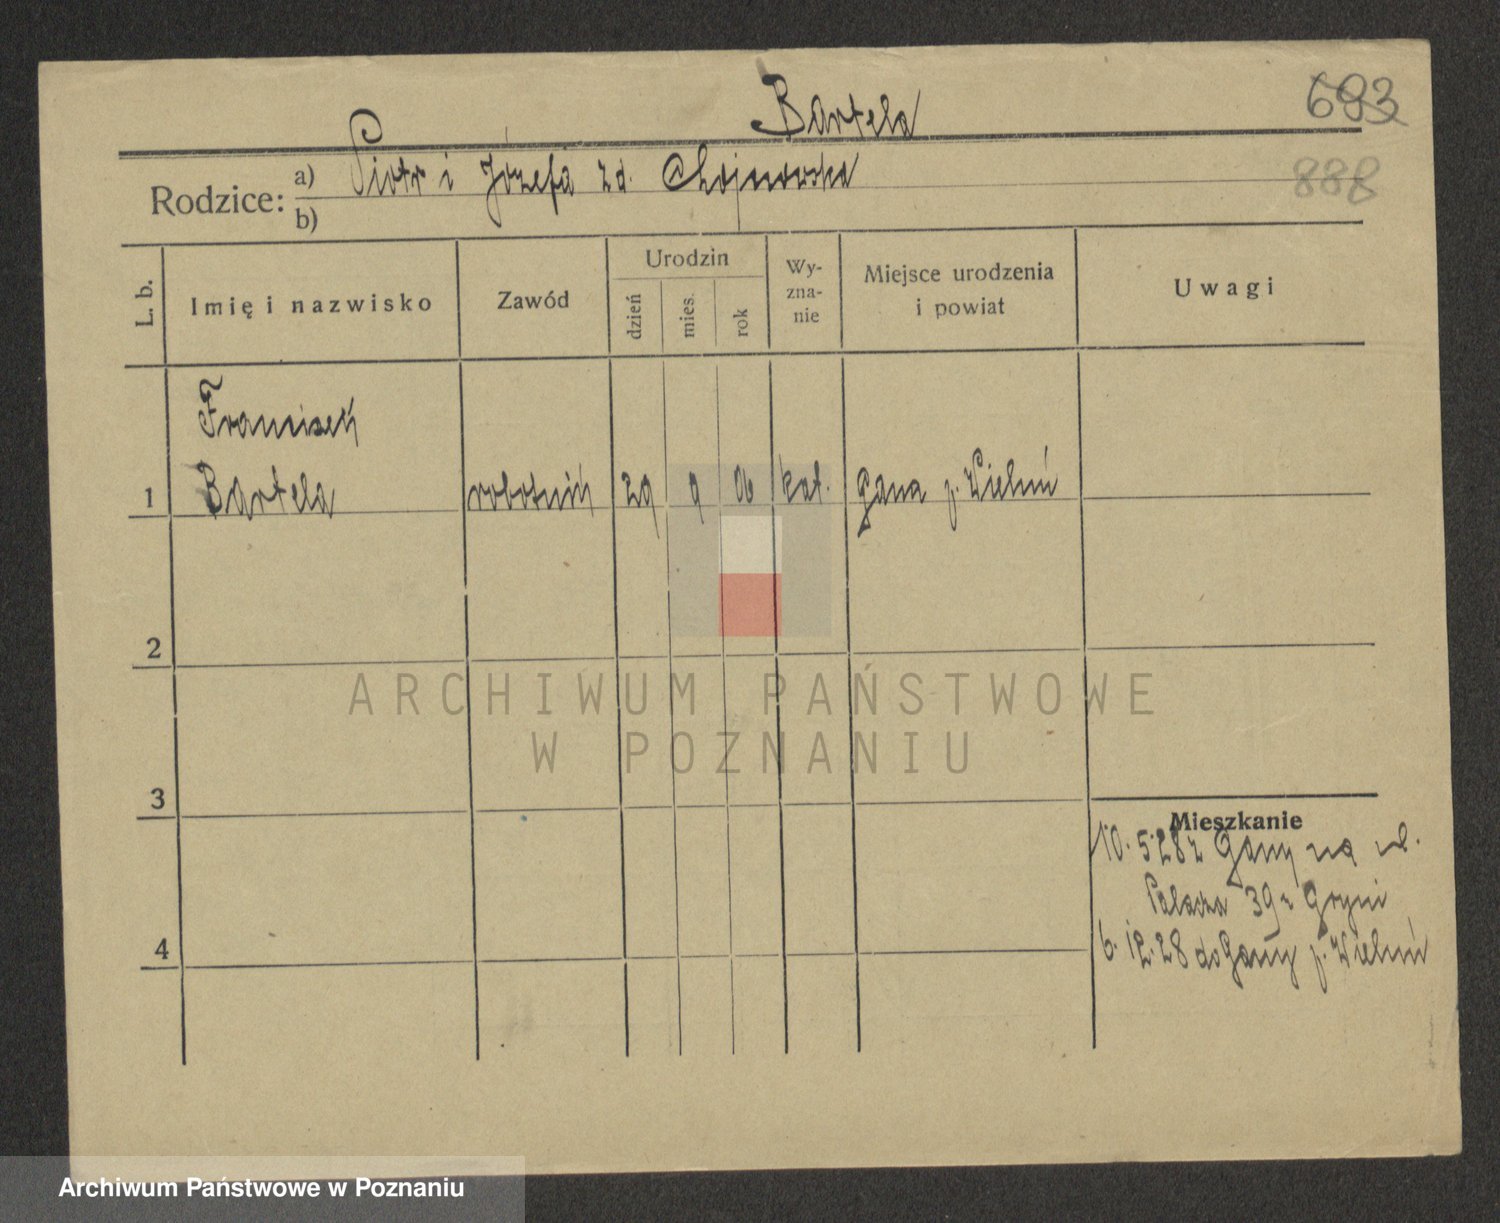 Bartela
693
888
Rodzice: a) Piotr i Józefa zd. Chojnowska
b)
L. b.
Imię i nazwisko
Zawód
Urodzin
dzień
mies.
rok
Wy-
zna-
nie
Miejsce urodzenia
i powiat
Uwagi
Franciszek
1 Bartela robotnik 29 9 06 kat. Gana p. Wieluń
2
3
4
Mieszkanie
10.5.28 z Gany na ul.
39
6.12.28 do Gany p. Wieluń
ARCHIWUM PAŃSTWOWE
W POZNANIU
Archiwum Państwowe w Poznaniu